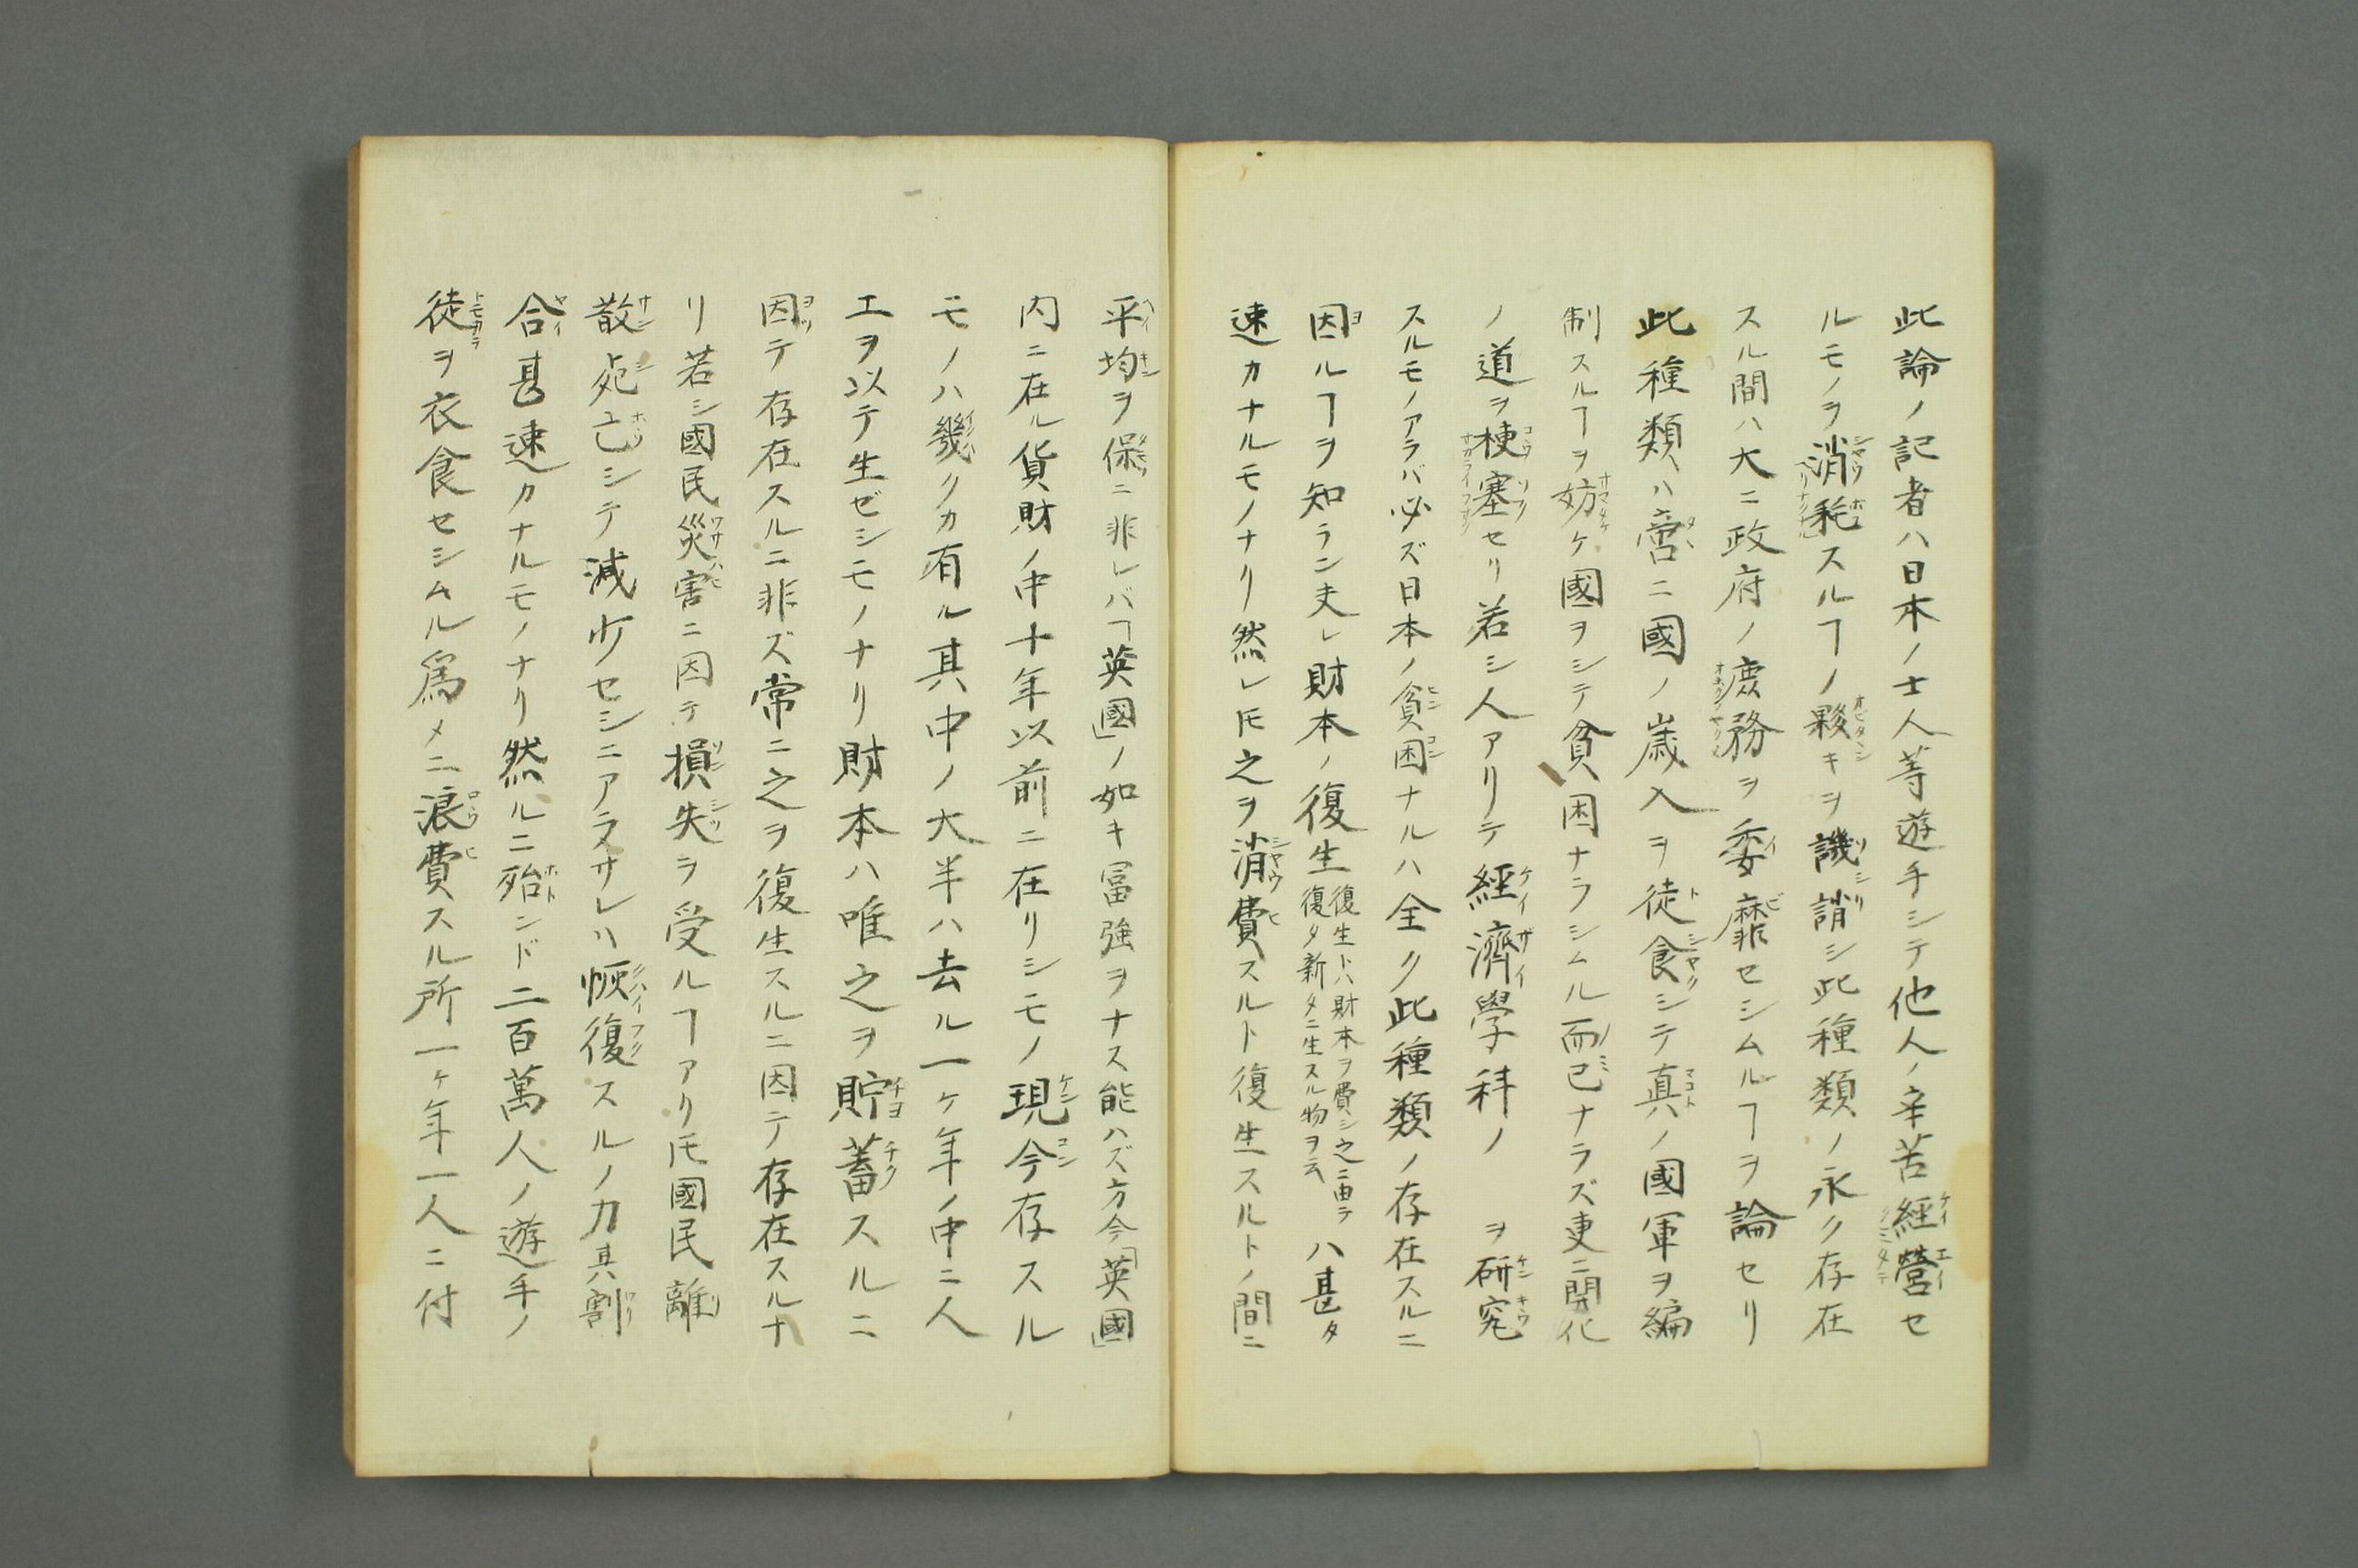 此論ノ記者ハ日本ノ士人等遊手シテ他人ノ辛苦經營セ
ルモノヲ消耗スルヿノ夥キヲ譏誚シ此種類ノ永ク存在
スル間ハ大ニ政府ノ庶務ヲ委靡セシムルヿヲ論セリ
此種類ハ啻ニ國ノ歳入ヲ徒食シテ真ノ國軍ヲ編
制スルヿヲ妨ケ國ヲシテ貧困ナラシムル而已ナラズ更ニ開化
ノ道ヲ梗塞セリ若シ人アリテ經濟學科ノ ヲ研究
スルモノアラバ必ズ日本ノ貧困ナルハ全ク此種類ノ存在スルニ
因ルヿヲ知ラン夫レ財本ノ復生復生トハ財本ヲ費シ之ニ由テ復タ新タニ生スル物ヲ云ハ甚タ
速カナルモノナリ然レ𪜈之ヲ消費スルト復生スルトノ間ニ
平均ヲ保ニ非レバ「英國」ノ如キ冨強ヲナス能ハズ方今「英國」
内ニ在ル貨財ノ中十年以前ニ在リシモノ現今存スル
モノハ幾クカ有ル其中ノ大半ハ去ル一ケ年ノ中ニ人
工ヲ以テ生ゼシモノナリ財本ハ唯之ヲ貯蓄スルニ
因テ存在スルニ非ズ常ニ之ヲ復生スルニ因テ存在スルナ
リ若シ國民災害ニ因テ損失ヲ受ルヿアリ𪜈國民離
散死亡シテ減少セシニアラズサレハ恢復スルノ力其割
合甚速カナルモノナリ然ルニ殆ンド二百萬人ノ遊手ノ
徒ヲ衣食セシムル為メニ浪費スル所一ケ年一人ニ付